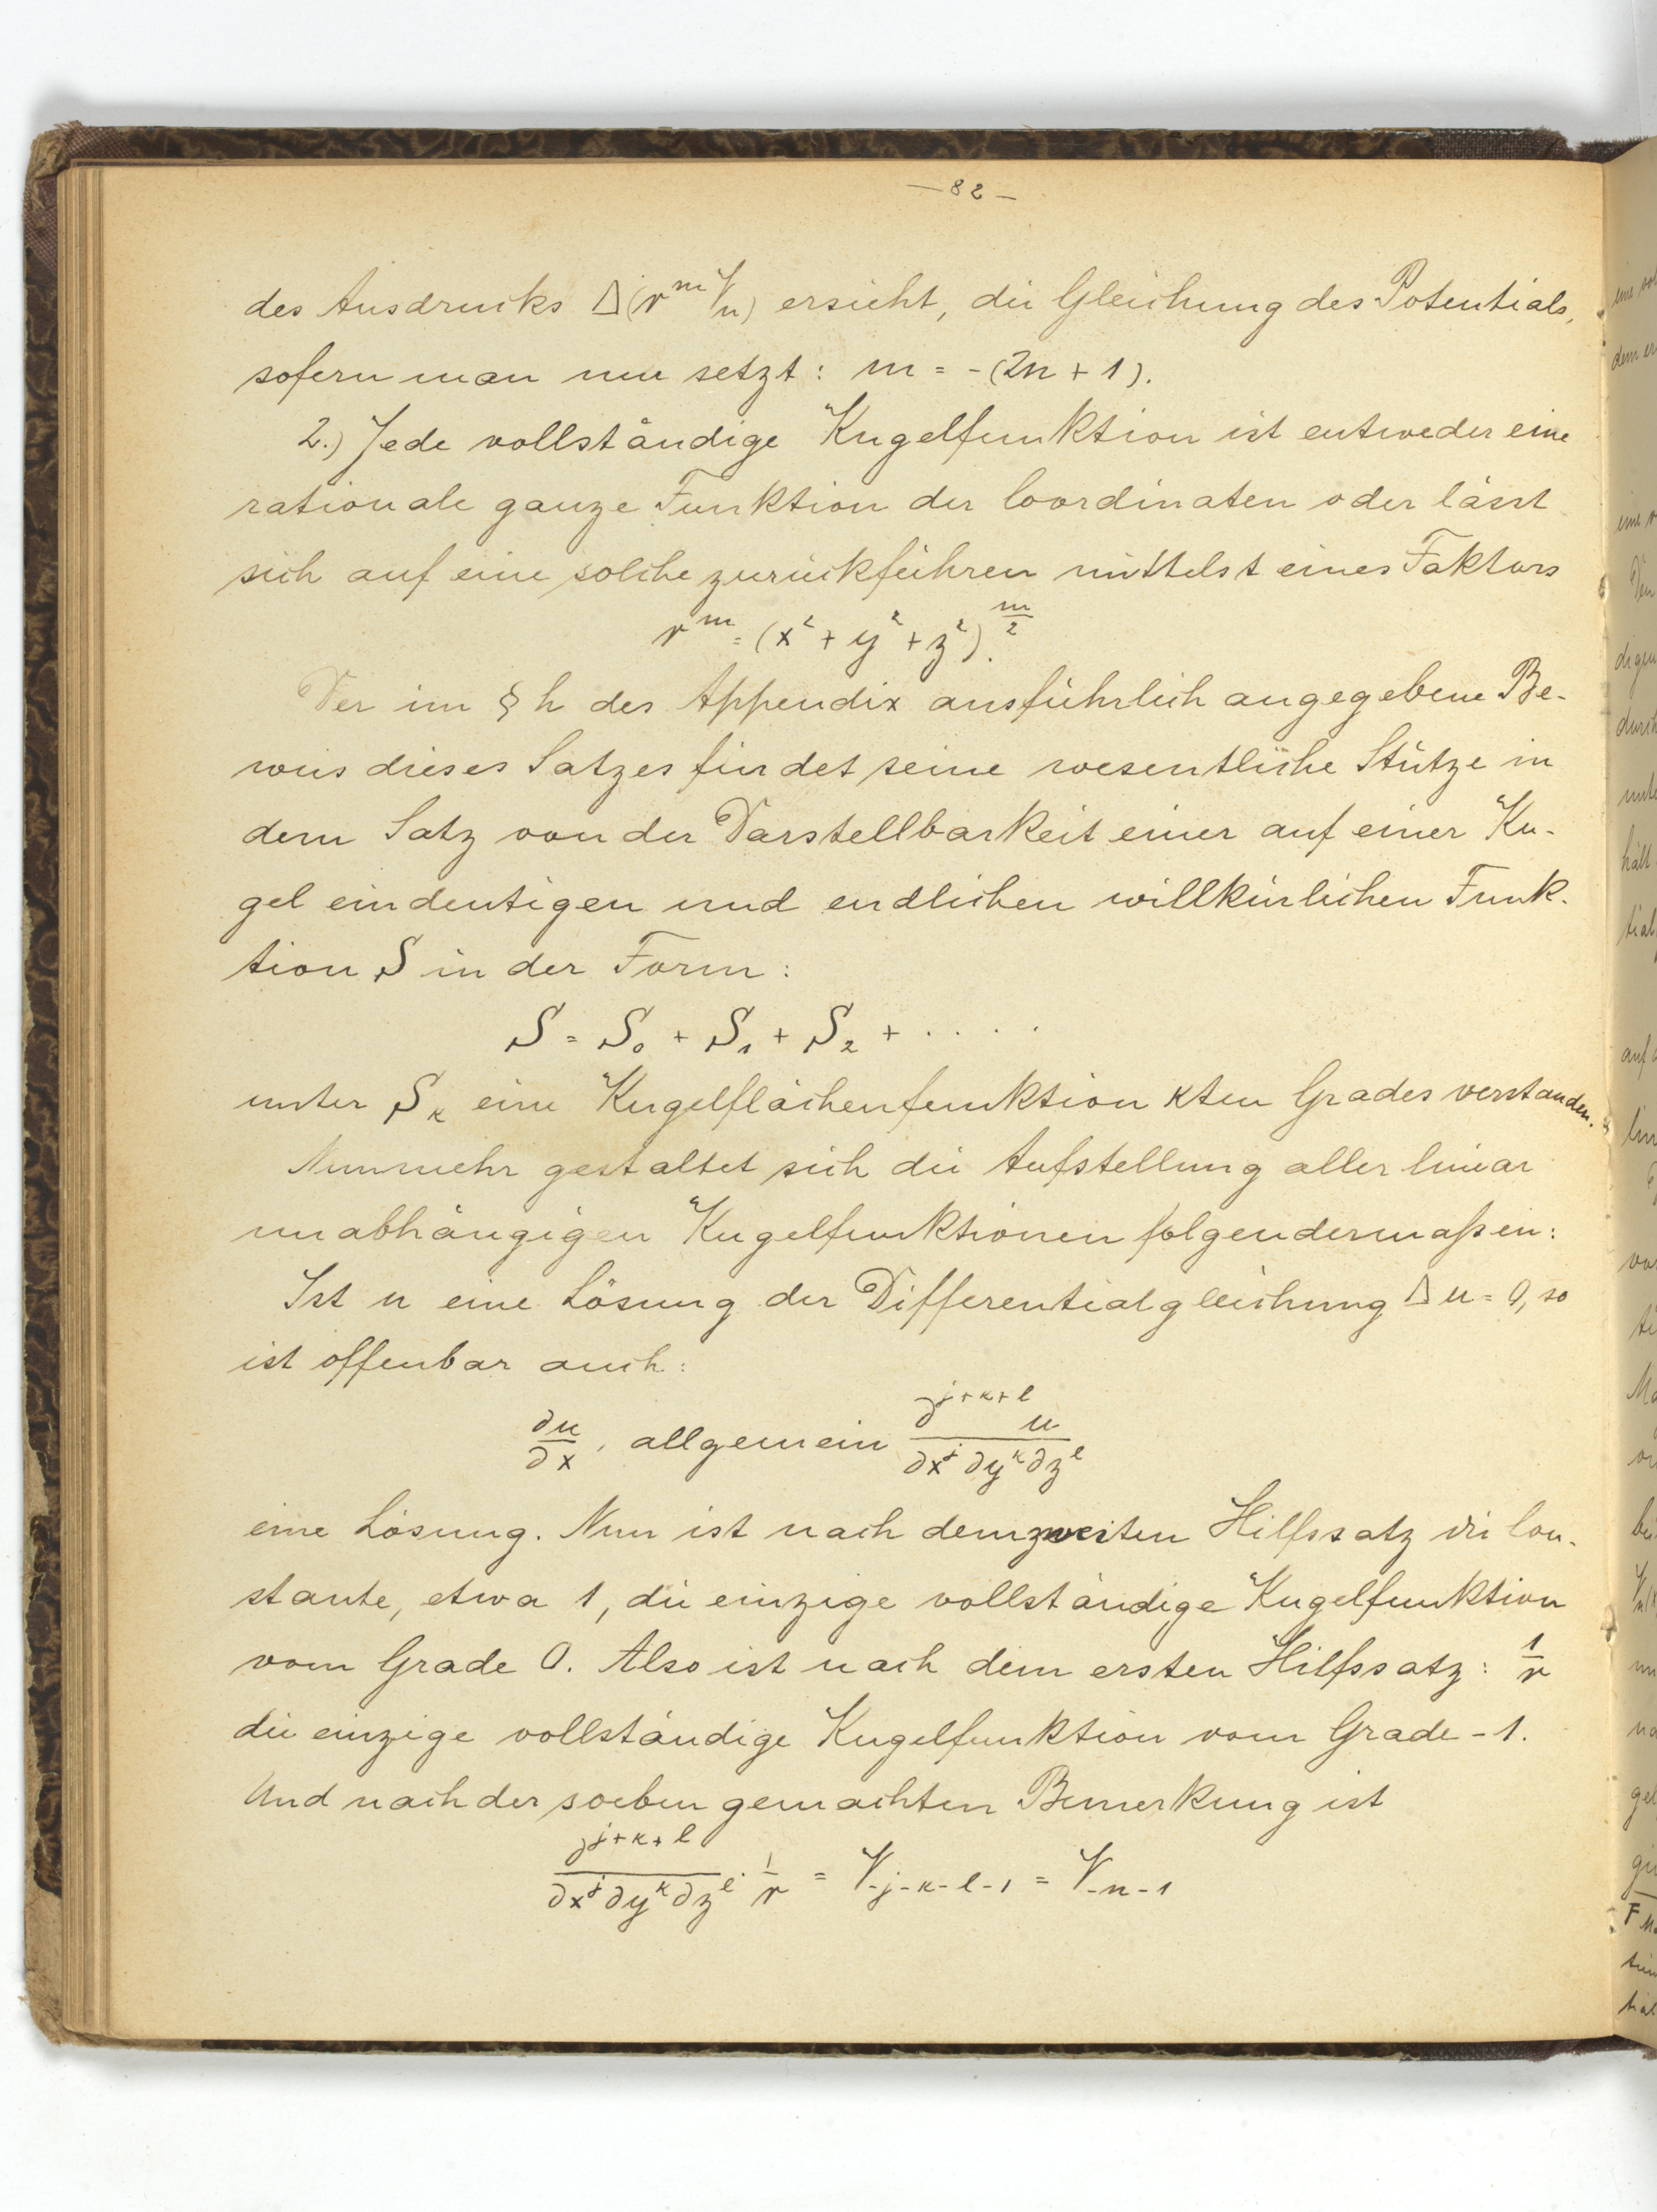 — 82 —
des Ausdrucks Δ(r^m V_n) ersieht, die Gleichung des Potentials,
sofern man nur setzt: m = -(2n + 1).
2.) Jede vollständige Kugelfunktion ist entweder eine
rationale ganze Funktion der Coordinaten oder lässt
sich auf eine solche zurückführen mittelst eines Faktors
r^m = (x² + y² + z²)^{m/2}.
Der im § h des Appendix ausführlich angegebene Be-
weis dieses Satzes findet seine wesentliche Stütze in
dem Satz von der Darstellbarkeit einer auf einer Ku-
gel eindeutigen und endlichen willkürlichen Funk-
tion S in der Form:
S = S₀ + S₁ + S₂ + · · · · ·
unter S_κ eine Kugelflächenfunktion κten Grades verstanden.
Nunmehr gestaltet sich die Aufstellung aller linear
unabhängigen Kugelfunktionen folgendermaßen:
Ist u eine Lösung der Differentialgleichung Δu = 0, so
ist offenbar auch:
∂u/∂x, allgemein ∂^{j+κ+l} u / ∂x^j ∂y^κ ∂z^l
eine Lösung. Nun ist nach dem zweiten Hilfssatz die Con-
stante, etwa 1, die einzige vollständige Kugelfunktion
vom Grade 0. Also ist nach dem ersten Hilfssatz: 1/r
die einzige vollständige Kugelfunktion vom Grade -1.
Und nach der soeben gemachten Bemerkung ist
∂^{j+κ+l} / ∂x^j ∂y^κ ∂z^l · 1/r = V_{-j-κ-l-1} = V_{-n-1}